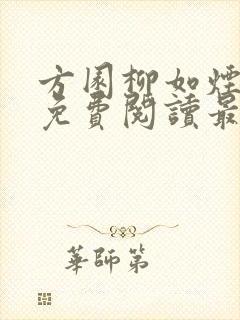 方圆柳如煙
免費閱讀最
華師第